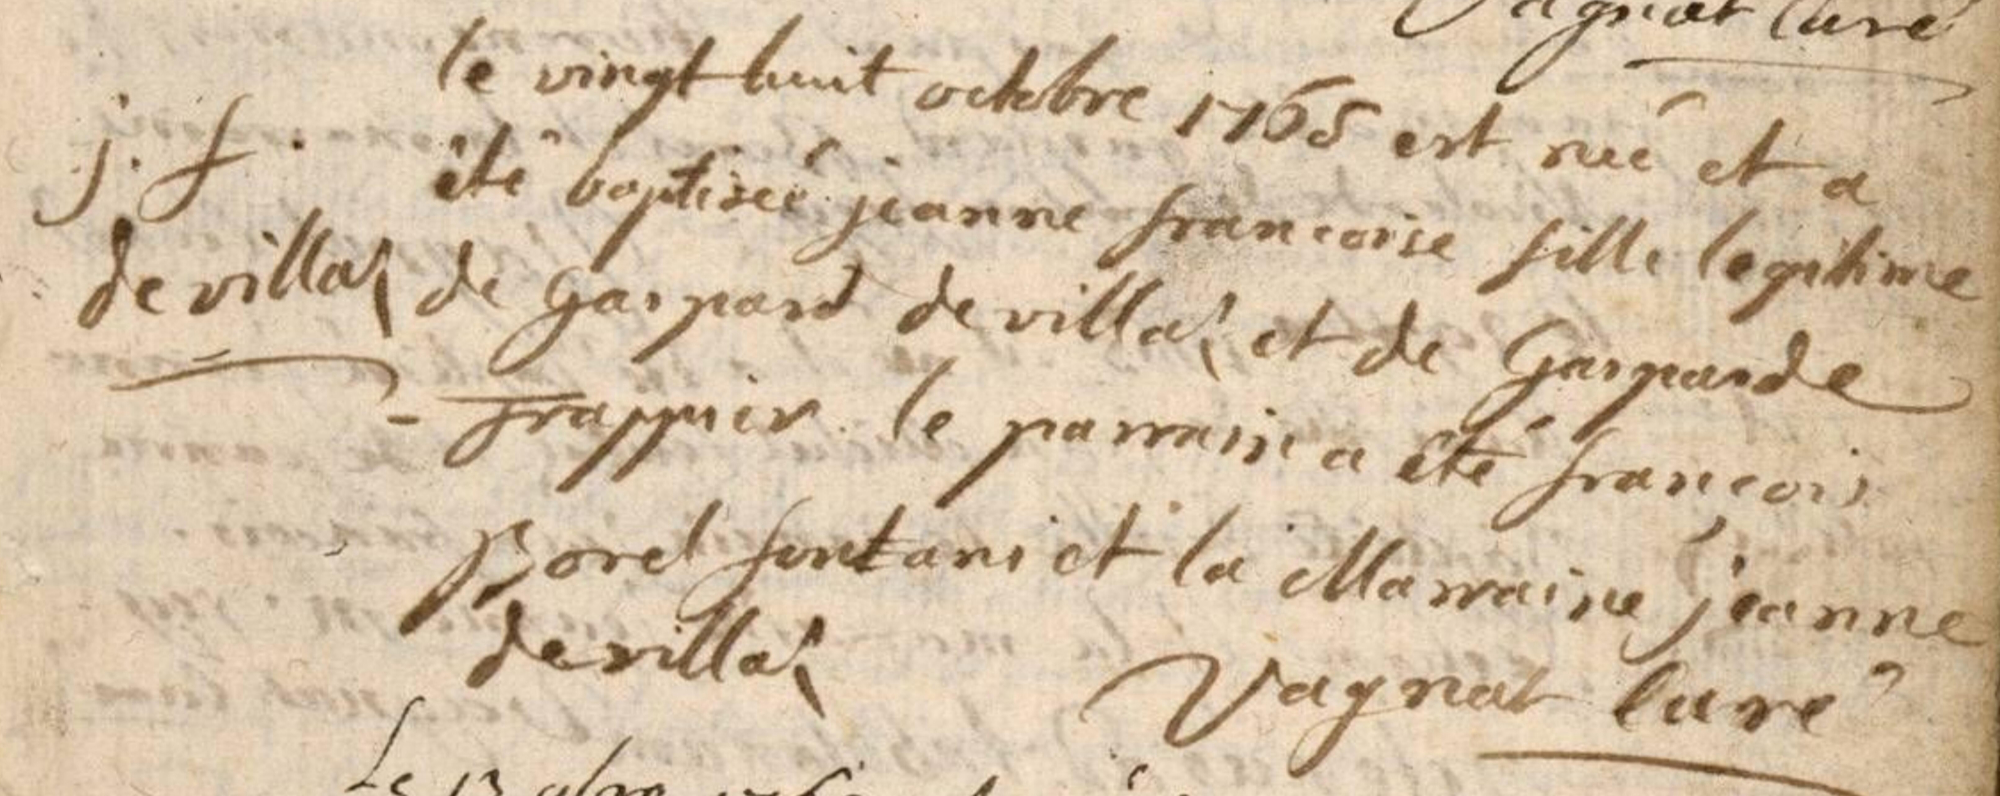 Vagnat Curé
le vingt huit octobre 1765 est neé et a
j. f. été baptiseé jeanne francoise fille legitime
devillaz de Gaspard devillaz et de Gasparde
frappier. le parrain a été françois
Borel fontani et la Marraine jeanne
devillaz Vagnat Curé